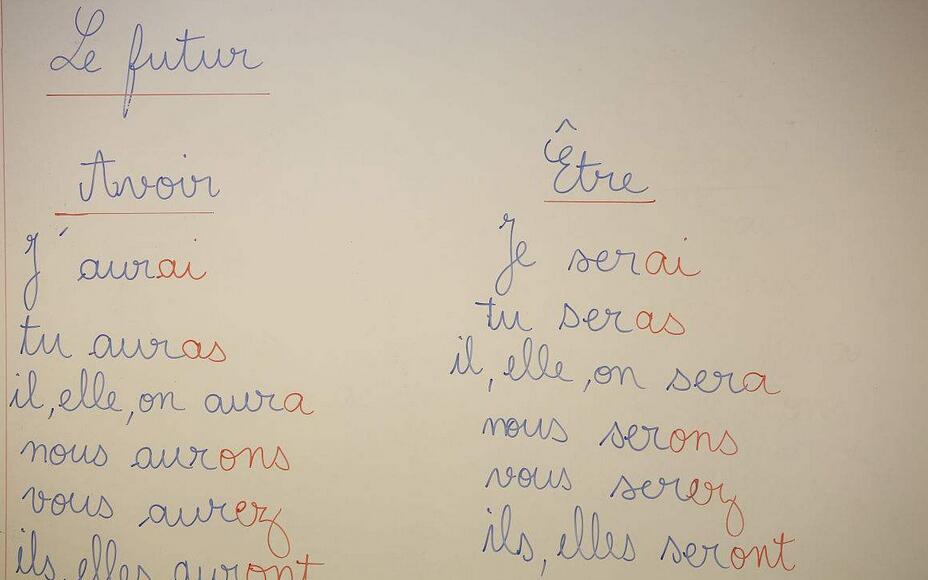 Le futur
Avoir
J'aurai
tu auras
il, elle, on aura
nous aurons
vous aurez
ils, elles auront
Être
Je serai
tu seras
il, elle, on sera
nous serons
vous serez
ils, elles seront